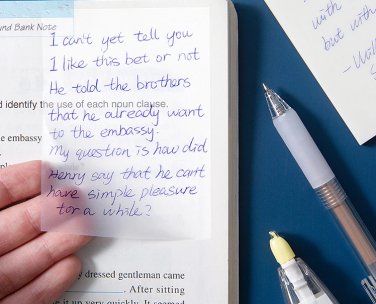 und Bank Note
I can't yet tell you
I like this bet or not
He told the brothers
d identify the use of each noun clause.
that he already want
he embassy
to the embassy.
My question is how did
Henry say that he can't
have simple pleasure
for a while?
y dressed gentleman came
. After sitting
it up very quickly. It seemed
with
but with